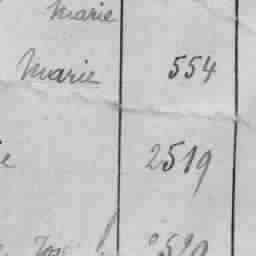 Marie
Marie 554
e 2519